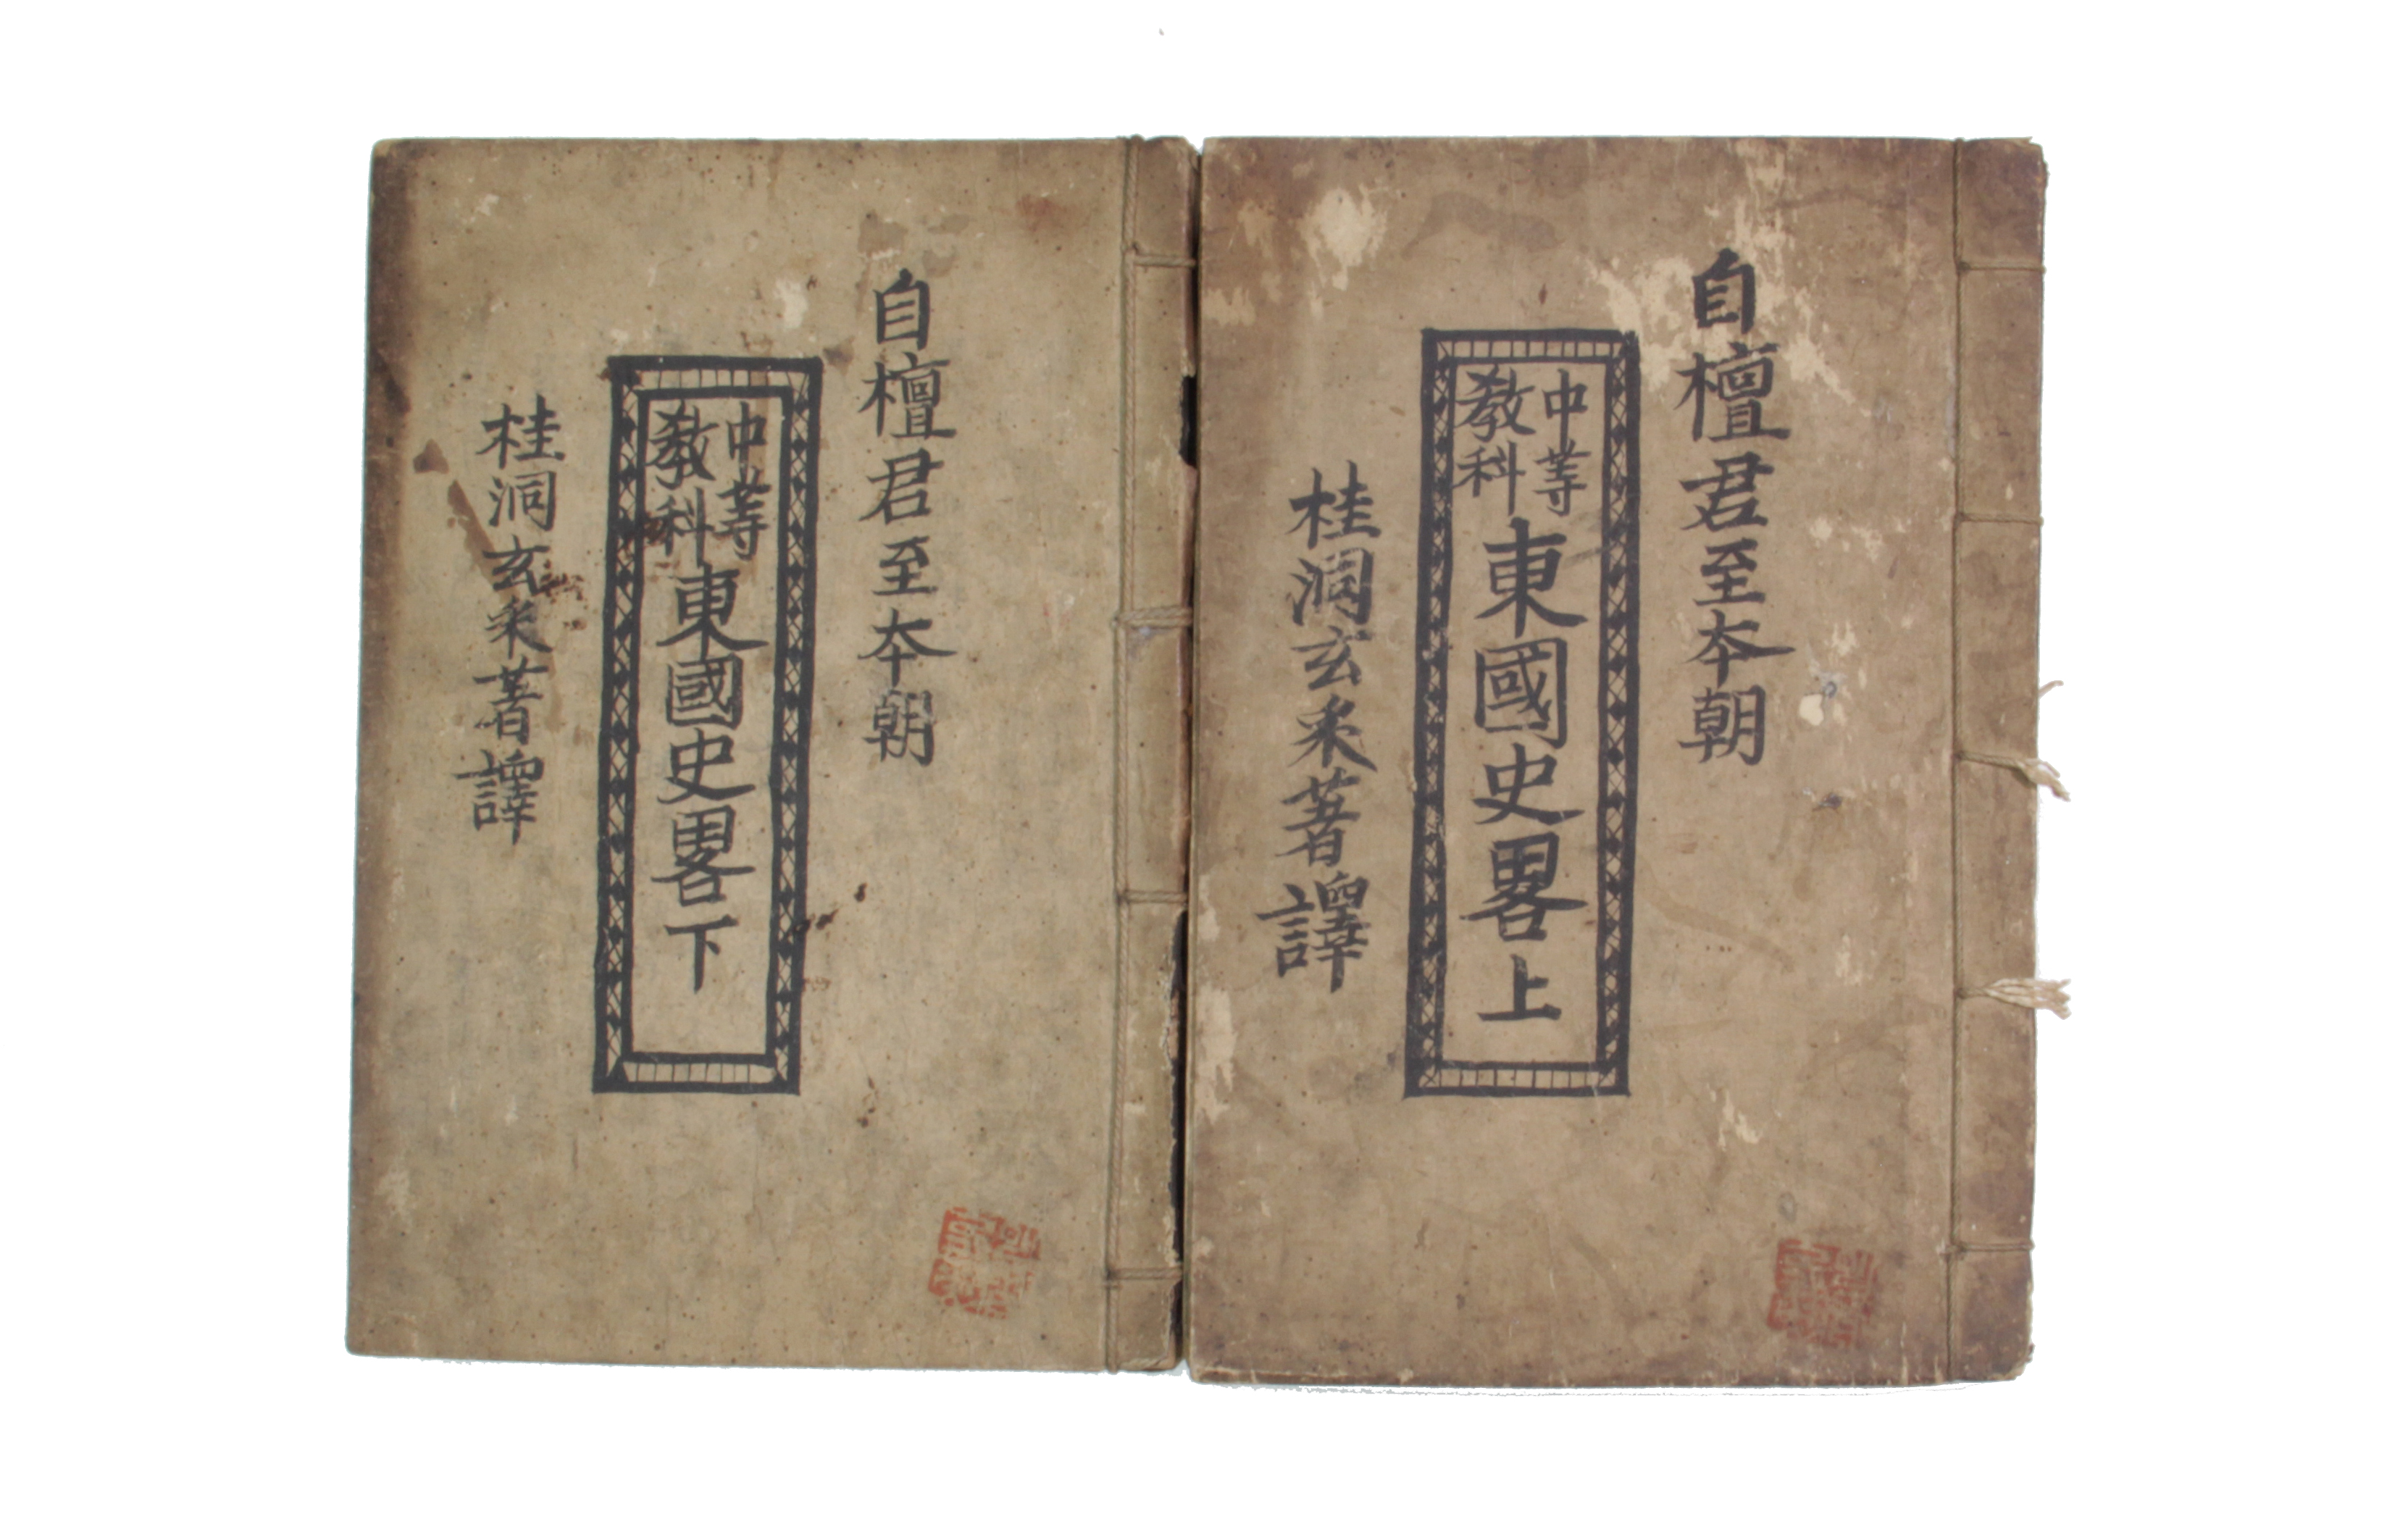 自檀君至本朝
中等
教科
東國史畧上
桂洞玄采著譯
自檀君至本朝
中等
教科
東國史畧下
桂洞玄采著譯